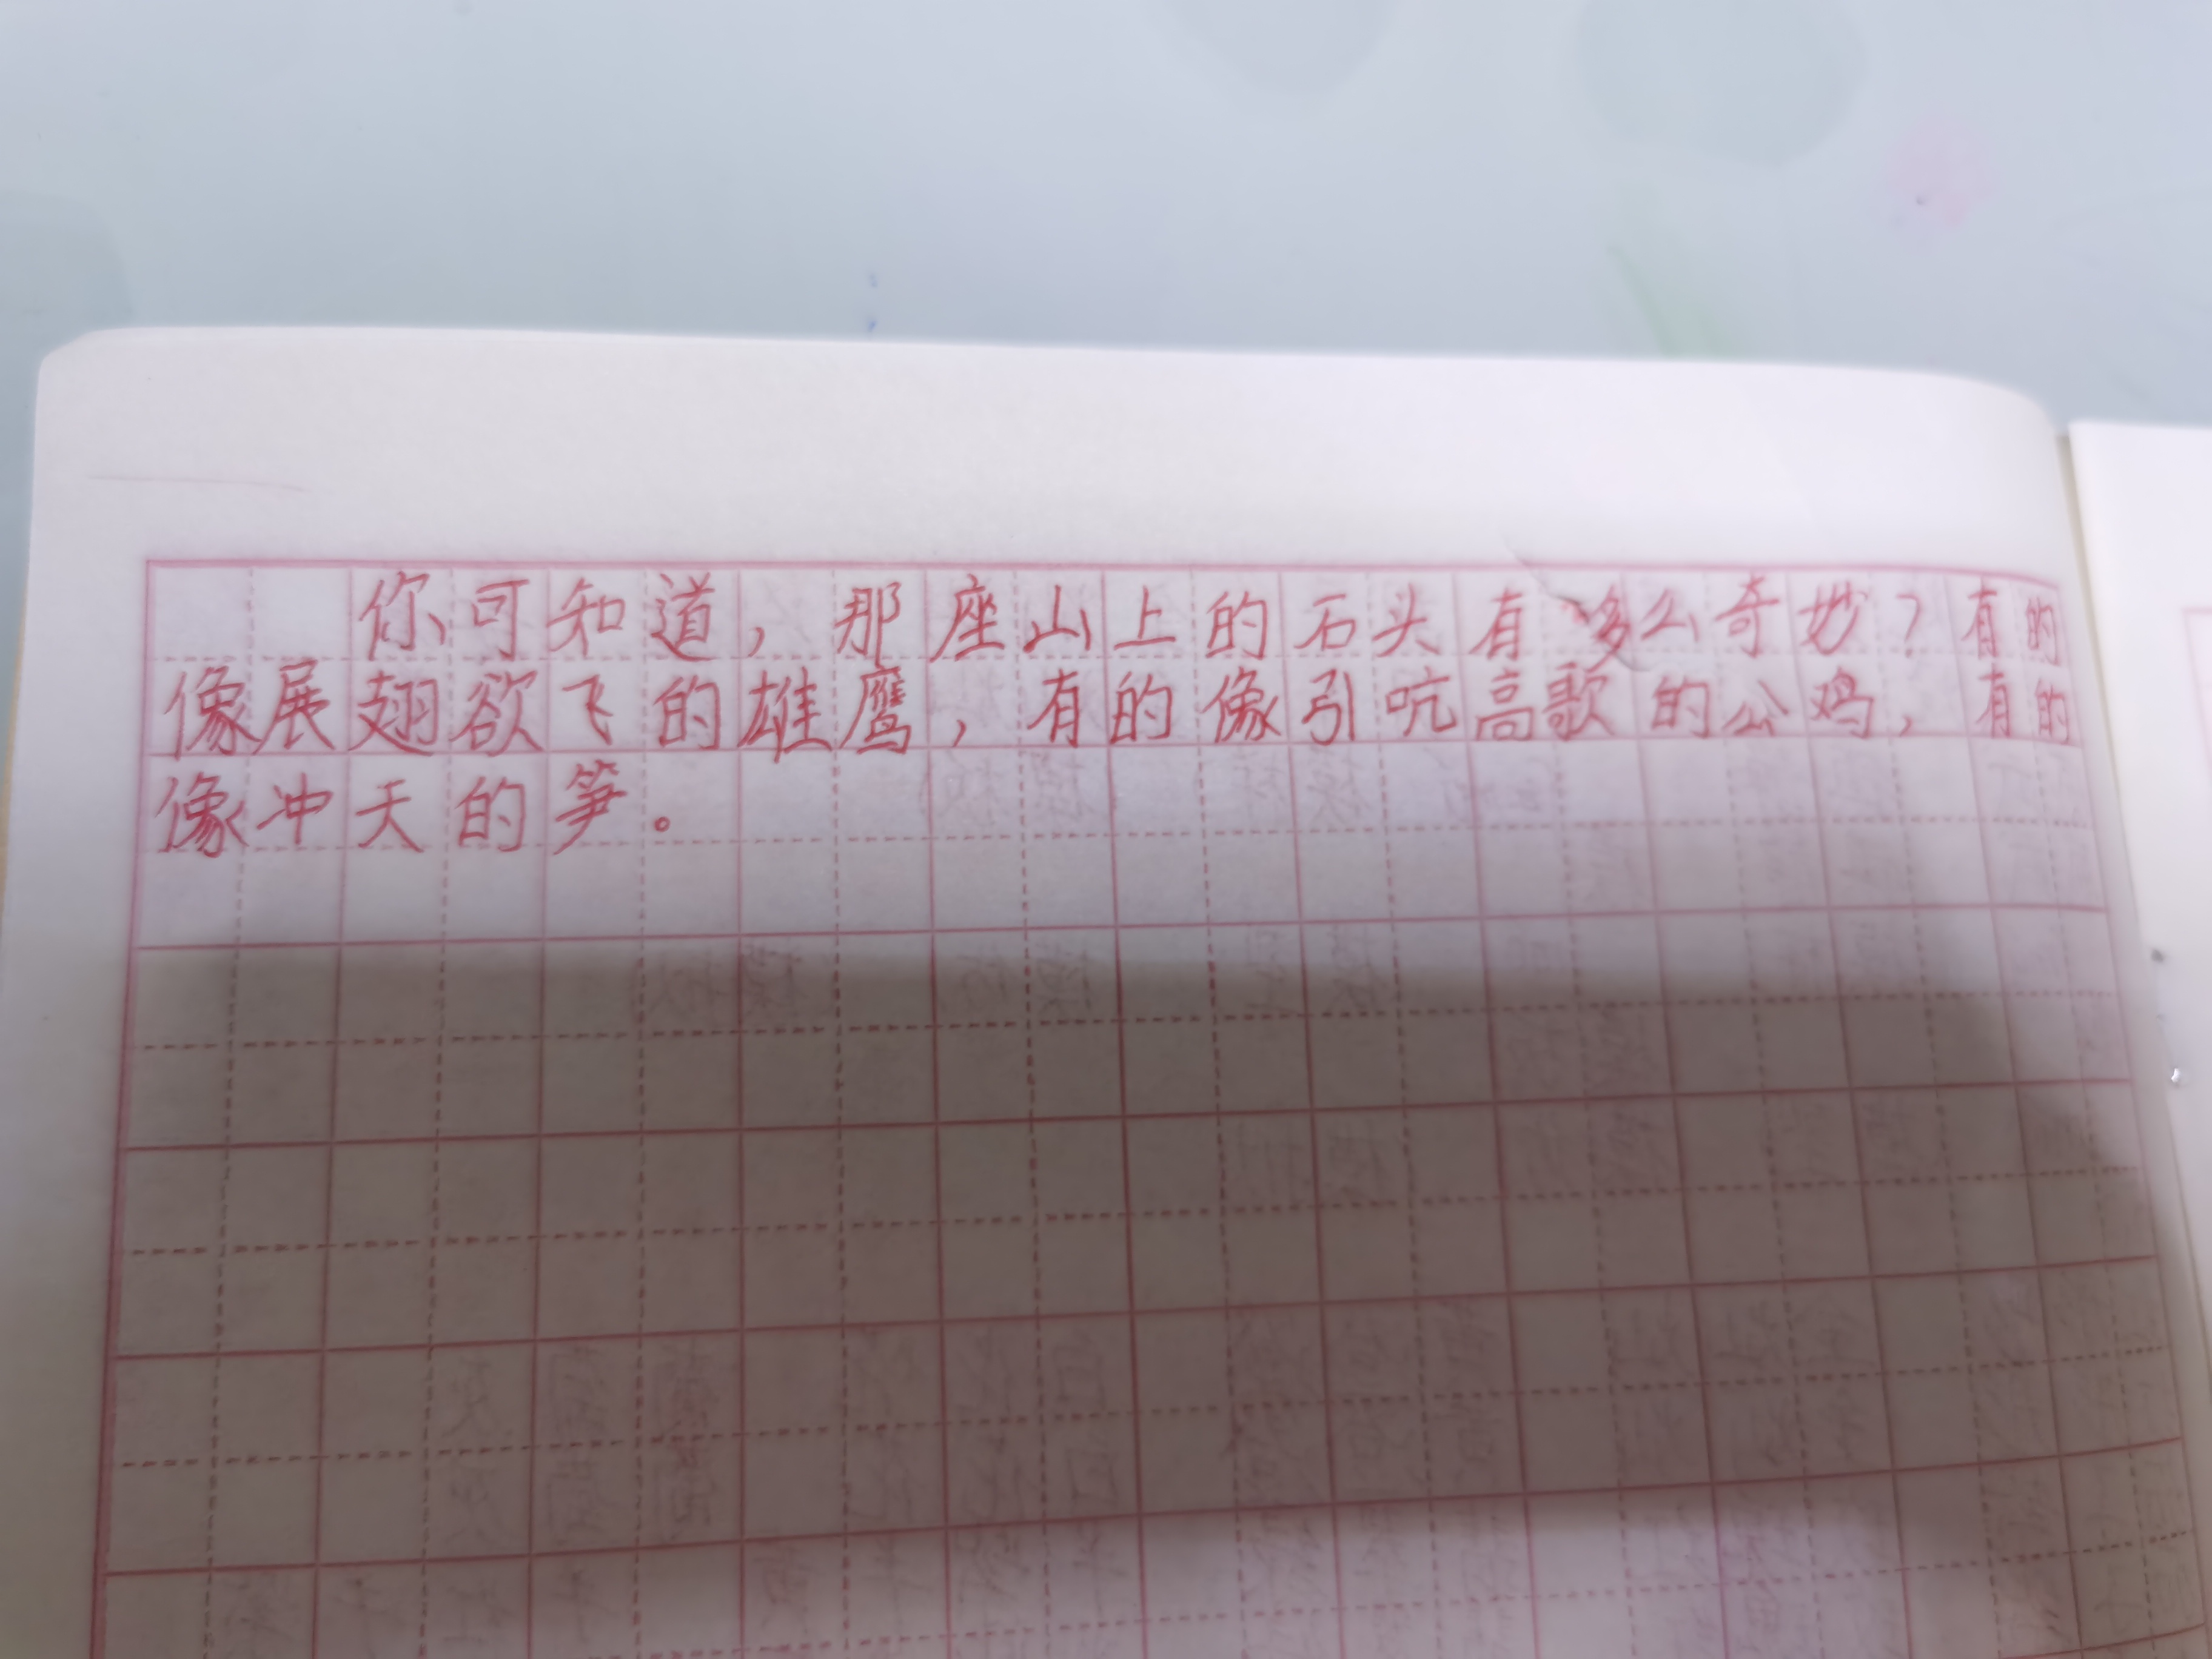 你可知道，那座山上的石头有多么奇妙？有的
像展翅欲飞的雄鹰，有的像引吭高歌的公鸡，有的
像冲天的笋。